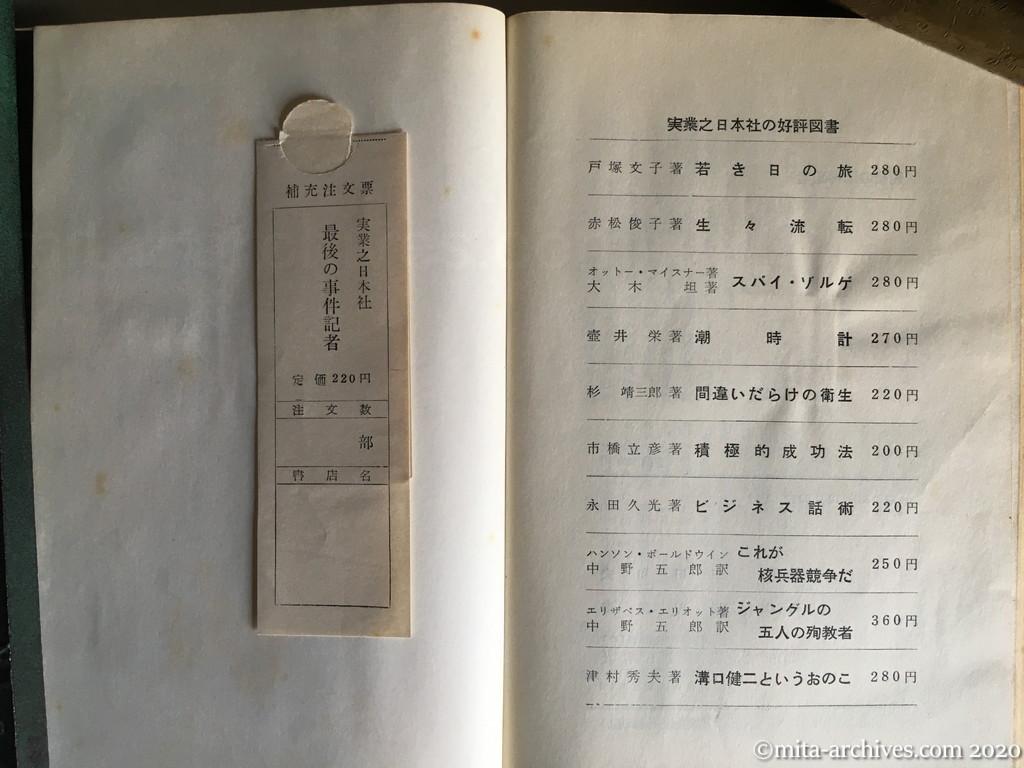 補充注文票
実業之日本社
最後の事件記者
定価220円
注文数
部
書店名
実業之日本社の好評図書
戸塚文子著 若き日の旅 280円
赤松俊子著 生々流転 280円
オットー・マイスナー著
大木坦著 スパイ・ゾルゲ 280円
壷井栄著 潮時計 270円
杉靖三郎著 間違いだらけの衛生 220円
市橋立彦著 積極的成功法 200円
永田久光著 ビジネス話術 220円
ハンソン・ボールドウイン これが
中野五郎訳 核兵器競争だ 250円
エリザベス・エリオット著 ジャングルの
中野五郎訳 五人の殉教者 360円
津村秀夫著 溝口健二というおのこ 280円
©mita-archives.com 2020